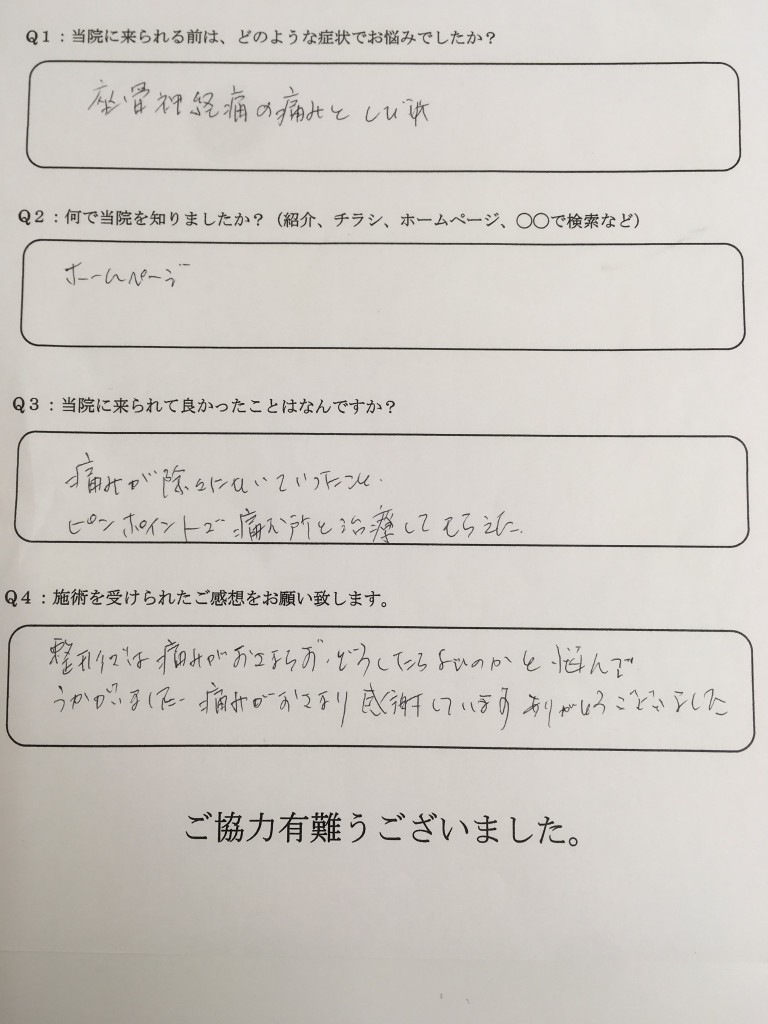 Q1:当院に来られる前は、どのような症状でお悩みでしたか?
座骨神経痛の痛みとしびれ
Q2:何で当院を知りましたか?(紹介、チラシ、ホームページ、〇〇で検索など)
ホームページ
Q3:当院に来られて良かったことはなんですか?
痛みが除々にひいていったこと.
ピンポイントで痛む所を治療してもらえた.
Q4:施術を受けられたご感想をお願い致します。
整形では痛みがおさまらず.どうしたらよいのかと悩んで
うかがいました.痛みがおさまり感謝しています ありがとうございました
ご協力有難うございました。